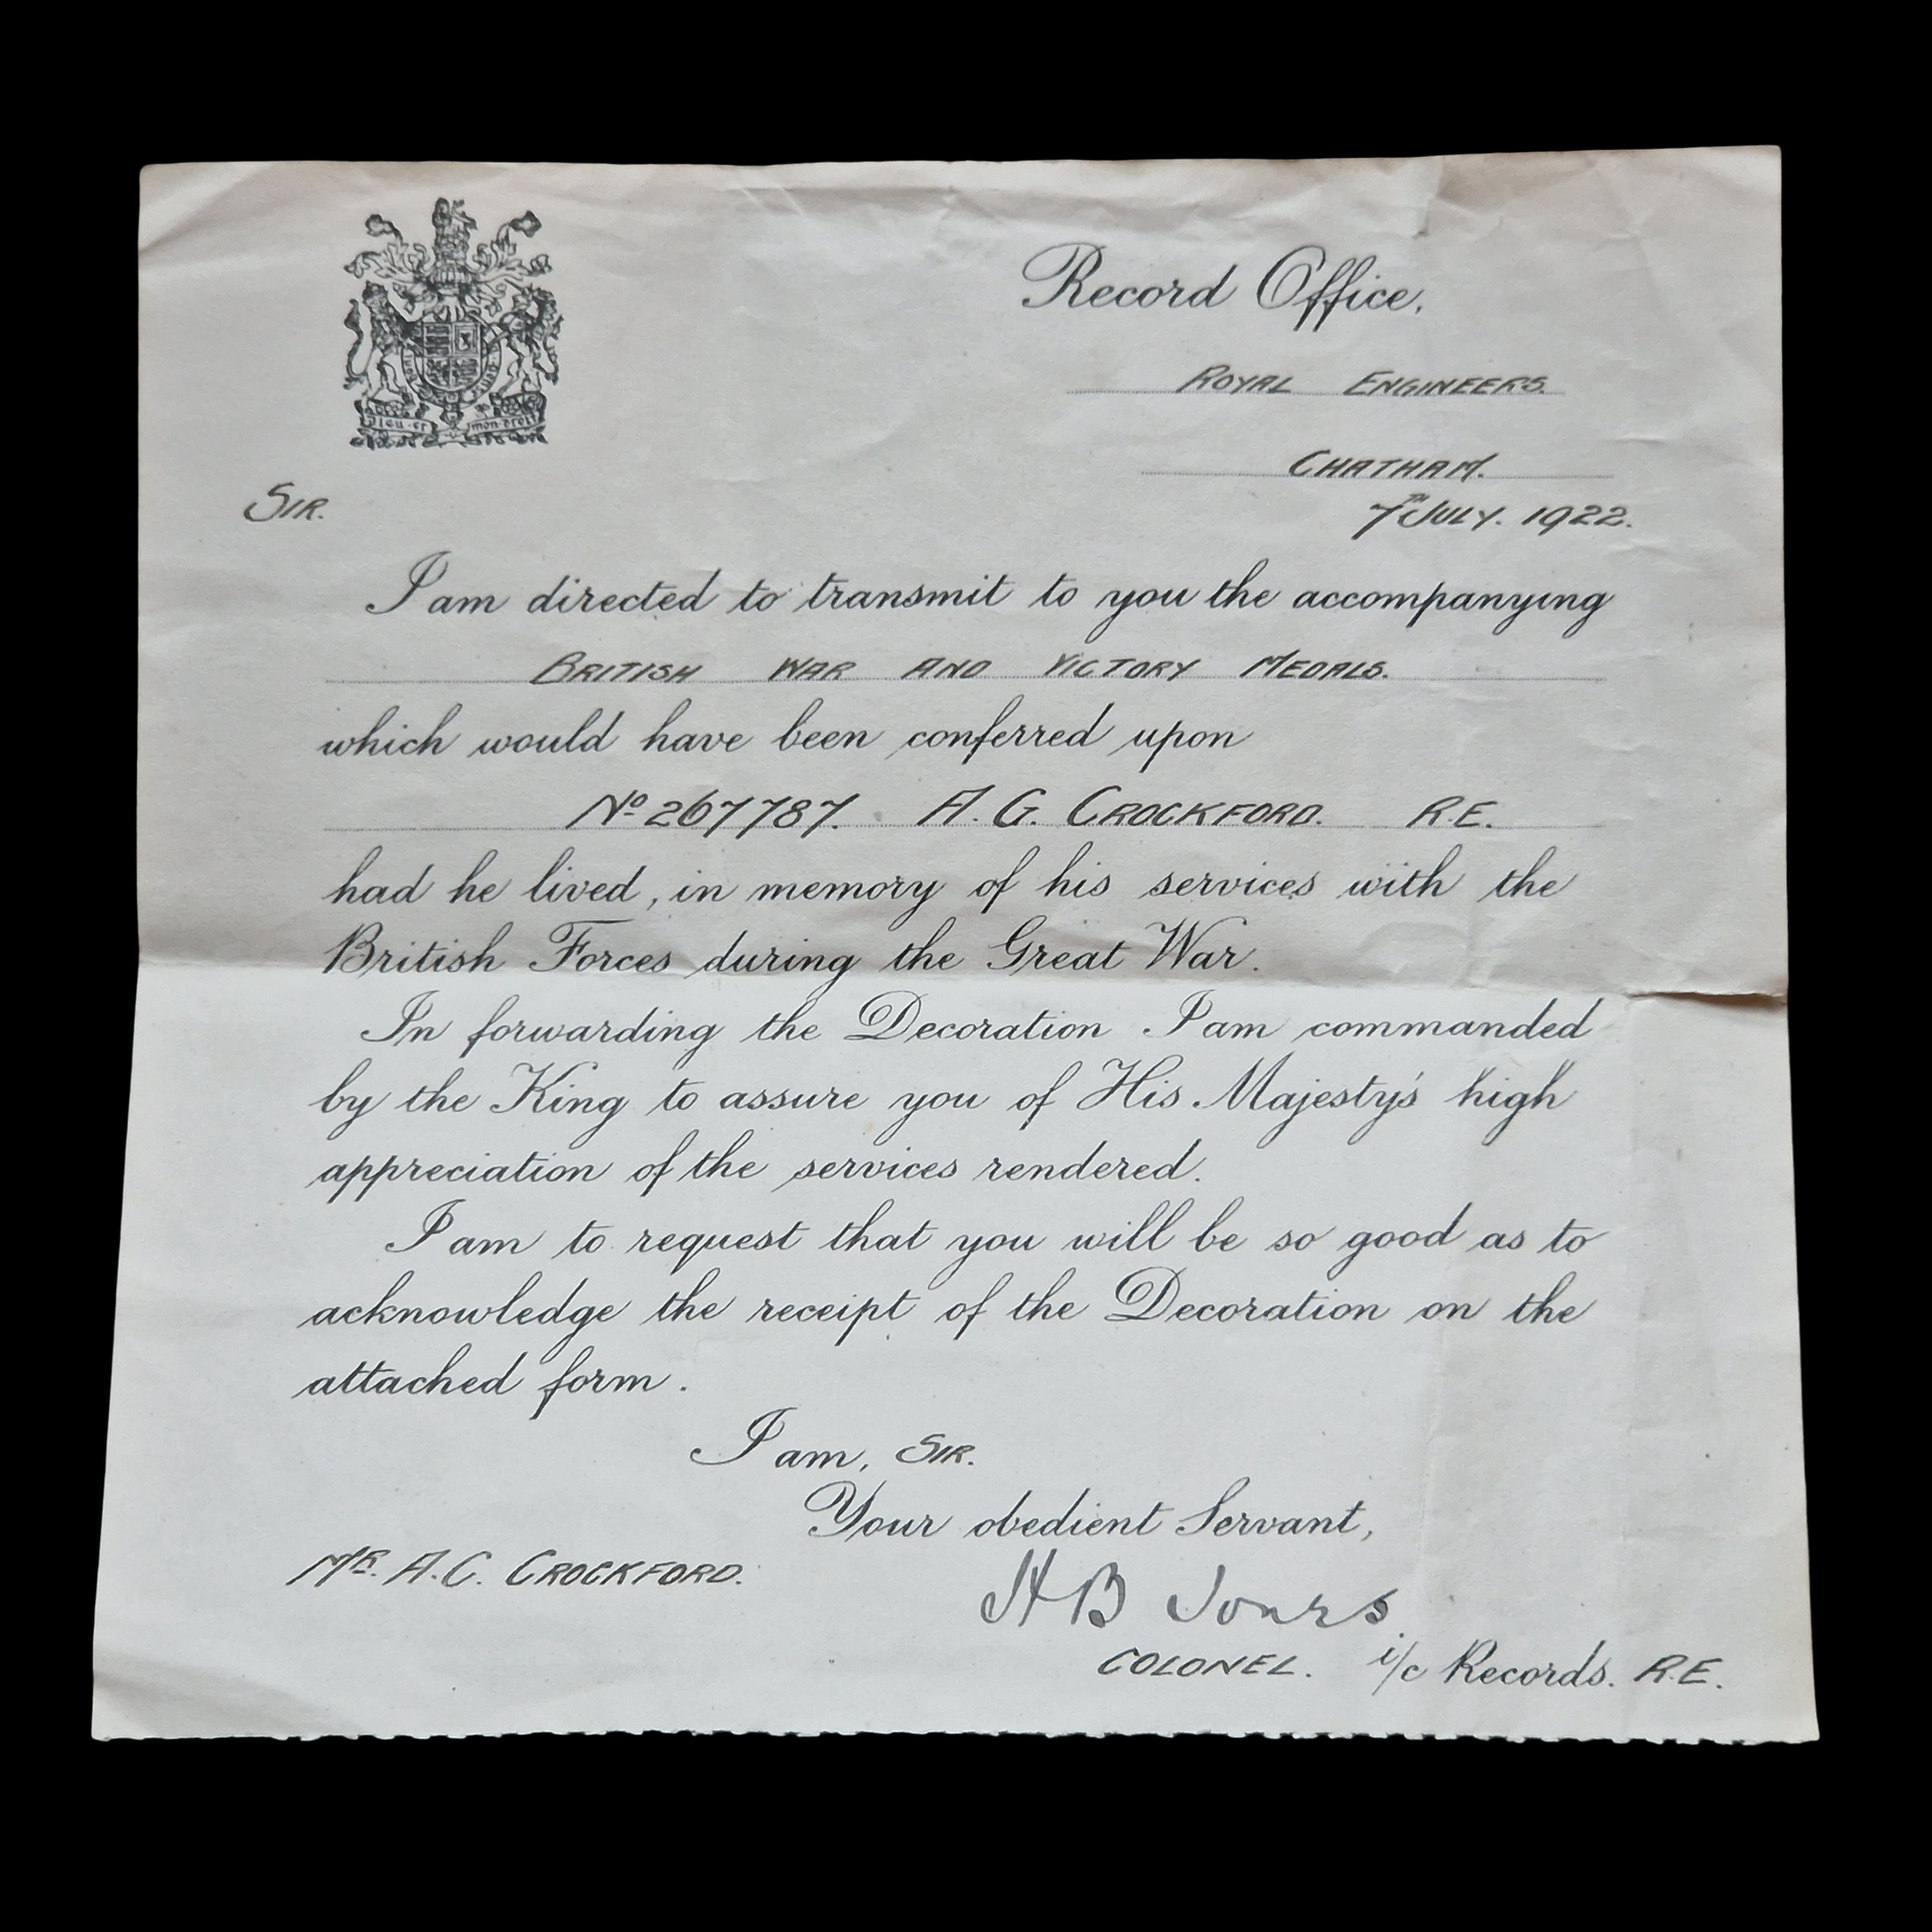 Dieu et mon droit
Record Office,
ROYAL ENGINEERS.
CHATHAM.
SIR.
7TH JULY. 1922.
I am directed to transmit to you the accompanying
BRITISH WAR AND VICTORY MEDALS.
which would have been conferred upon
No 267787. A. G. CROCKFORD. R.E.
had he lived, in memory of his services with the
British Forces during the Great War.
In forwarding the Decoration I am commanded
by the King to assure you of His Majesty's high
appreciation of the services rendered.
I am to request that you will be so good as to
acknowledge the receipt of the Decoration on the
attached form.
I am, SIR.
Your obedient Servant,
MR. A. C. CROCKFORD.
H B Jones
COLONEL. i/c Records. R.E.